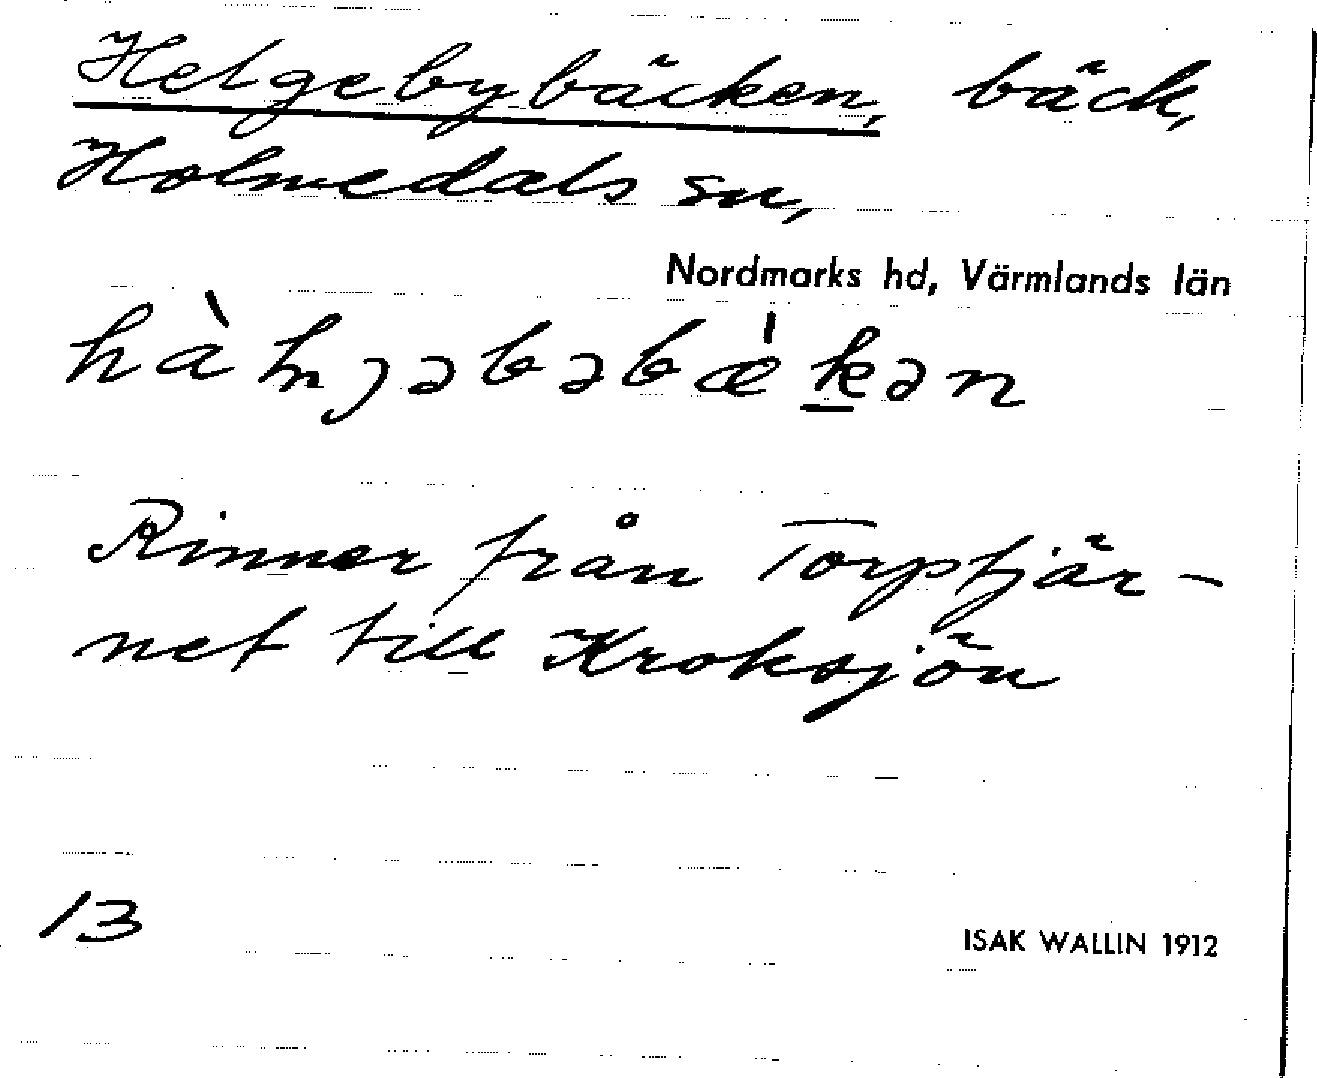 Helgebybäcken, bäck,
Holmedals sn,
Nordmarks hd, Värmlands län
Rinner från Torptjär-
net till Kroksjön
13
ISAK WALLIN 1912